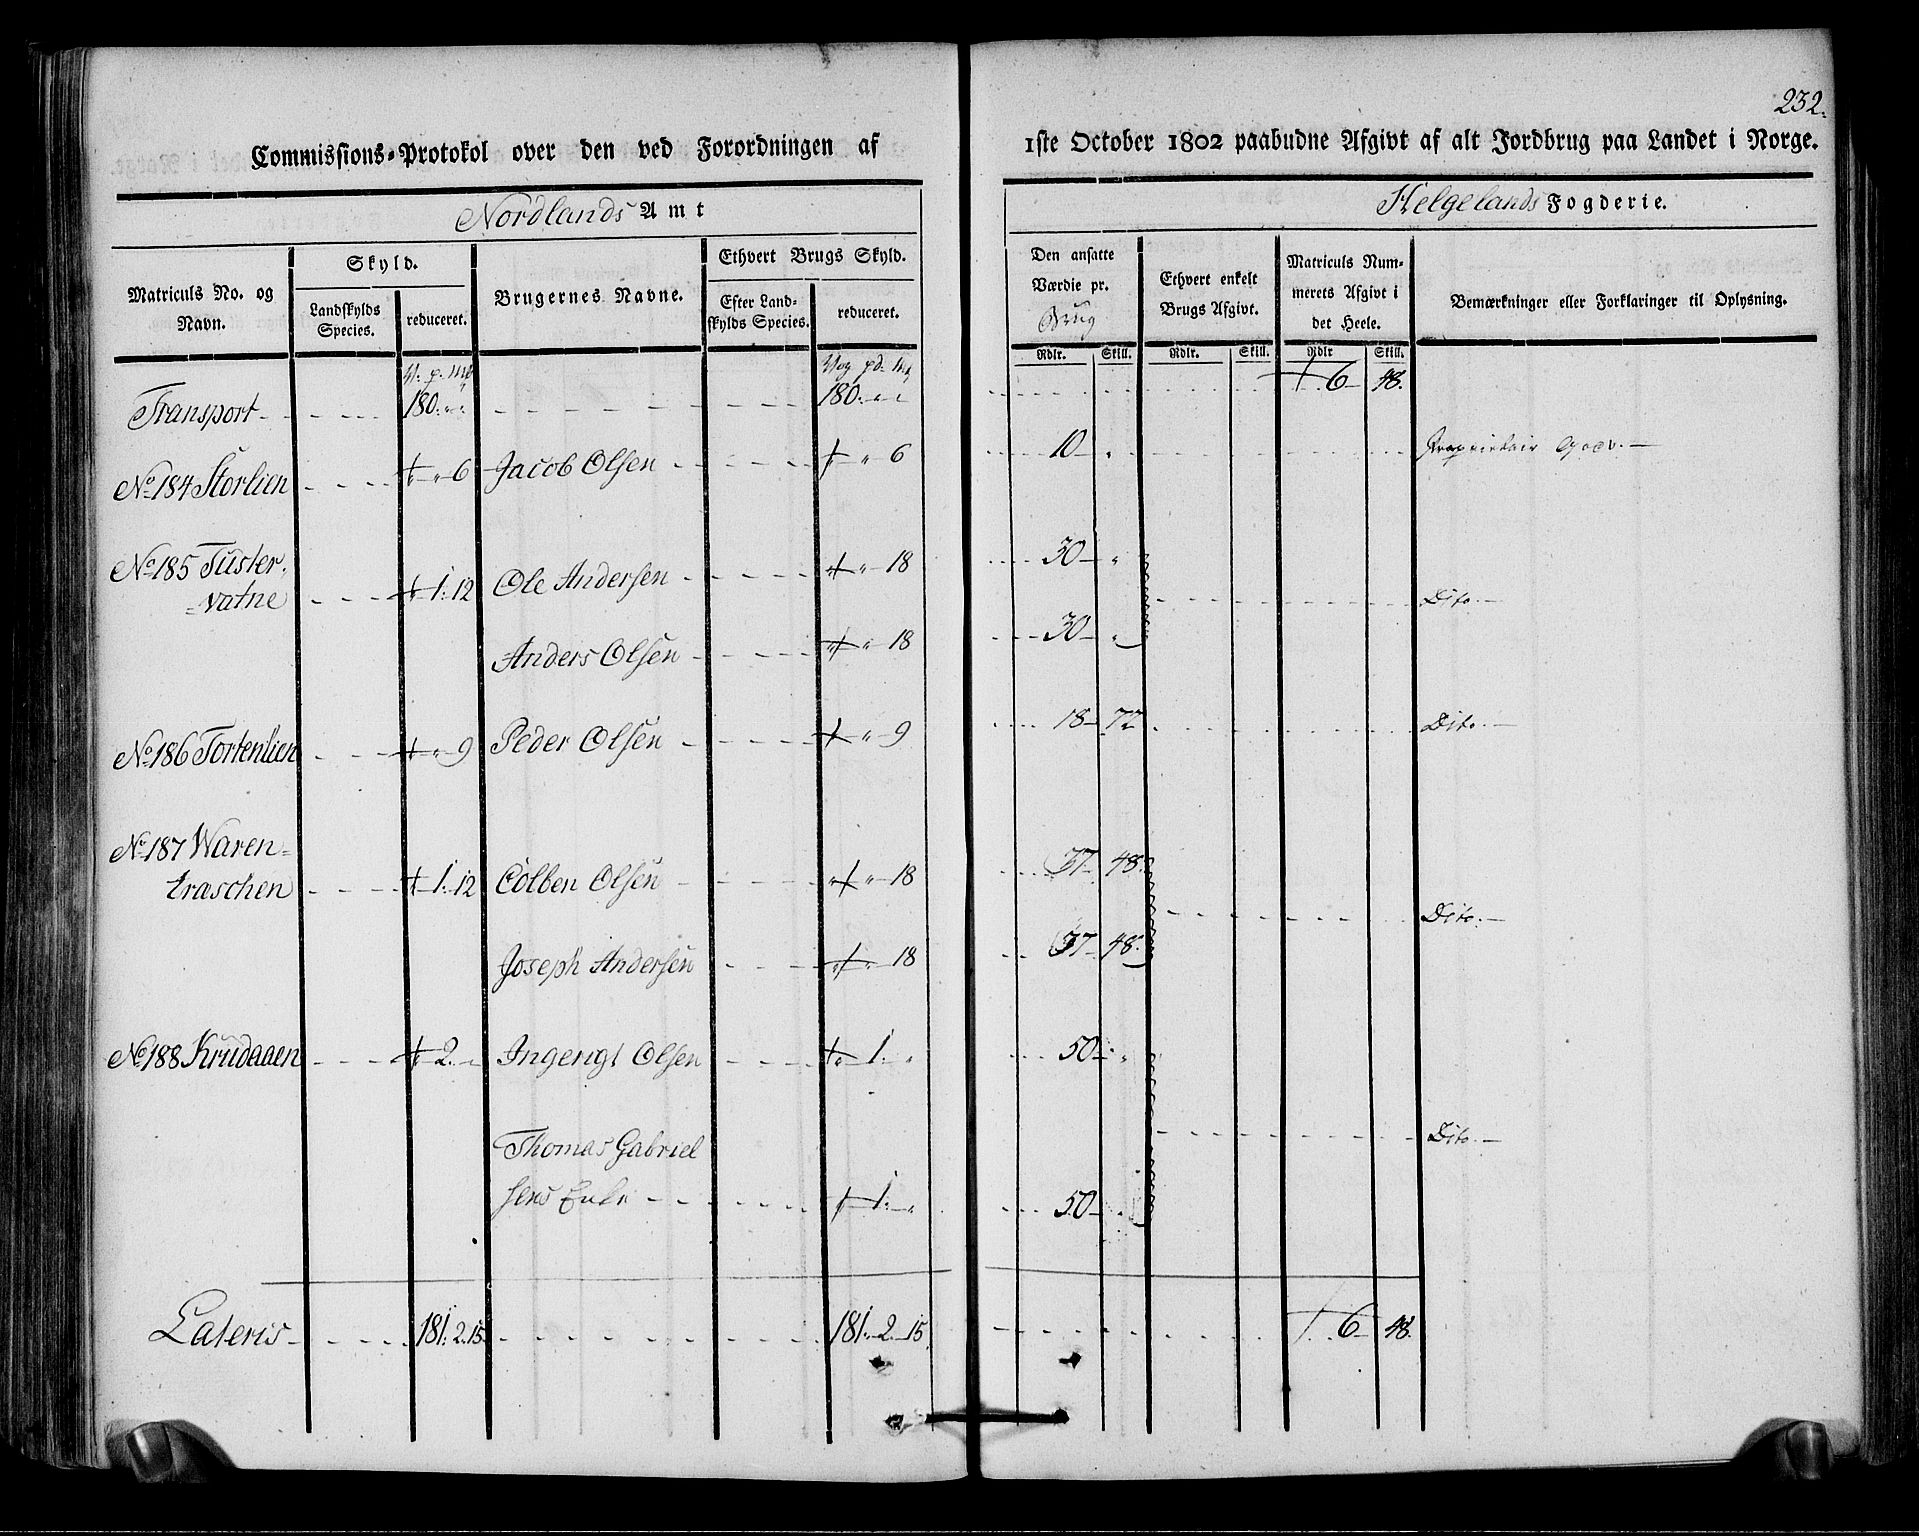 232.
Commissions-Protokol over den ved Forordningen af 1ste October 1802 paabudne Afgivt af alt Jordbrug paa Landet i Norge.
Nordlands Amt
Helgelands Fogderie.
Matriculs No. og Navn.
Skyld.
Landskylds Species.
reduceret.
Brugernes Navne.
Ethvert Brugs Skyld.
Efter Landskylds Species.
reduceret.
Den ansatte Værdie pr. Brug
Rdlr. Skill.
Ethvert enkelt Brugs Afgivt.
Rdlr. Skill.
Matriculs Nummerets Afgivt i det Heele.
Rdlr Skill.
Bemærkninger eller Forklaringer til Oplysning.
V. p. Mk Vog pd. Mk
Transport 180. " " 180. " " 6 48.
No 184 Storlien " " 6 Jacob Olsen " " 6 10 " Proprietair Gods.
No 185 Tuster-
=vatne " 1. 12 Ole Andersen " " 18 30 " Dito.
Anders Olsen " " 18 30 "
No 186 Tortenlien " " 9 Peder Olsen " " 9 18 72 Dito.
No 187 Waren=
traschen " 1. 12 Colben Olsen " " 18 37 48. Dito.
Joseph Andersen " " 18 37 48.
No 188 Krudaaen " 2. " Ingerigt Olsen " 1. " 50 "
Thomas Gabriel
sens Enke " 1. " 50 " Dito.
Lateris 181. 2. 15 181. 2. 15. 6 48.